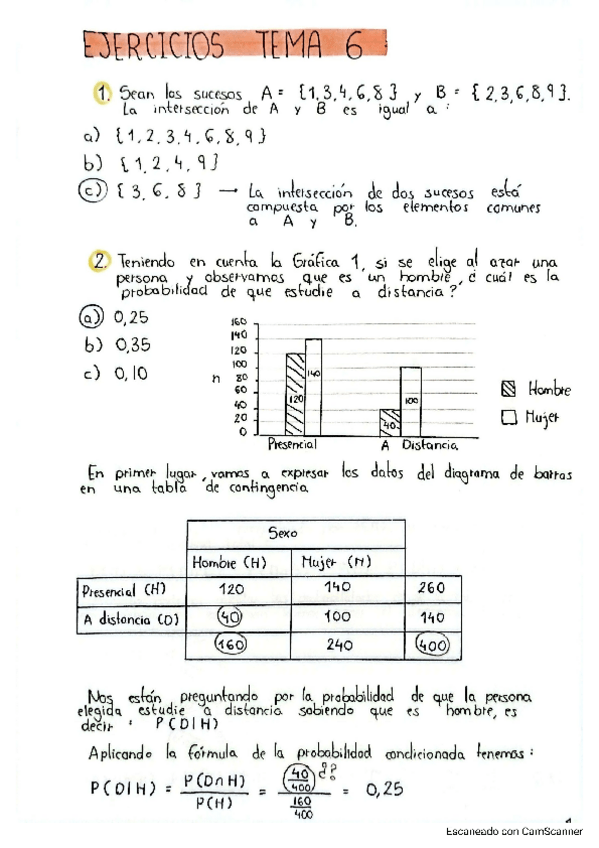 EJERCICIOS TEMA 6
1. Sean los sucesos A = {1,3,4,6,8} y B = {2,3,6,8,9}.
La intersección de A y B es igual a :
a) {1,2,3,4,6,8,9}
b) {1,2,4,9}
c) {3,6,8} → La intersección de dos sucesos está
compuesta por los elementos comunes
a A y B.
2. Teniendo en cuenta la Gráfica 1, si se elige al azar una
persona y observamos que es un hombre, ¿cuál es la
probabilidad de que estudie a distancia?
a) 0,25
b) 0,35
c) 0,10
n
160
140
120
100
80
60
40
20
0
120
140
40
100
Presencial
A Distancia
Hombre
Mujer
En primer lugar, vamos a expresar los datos del diagrama de barras
en una tabla de contingencia.
Sexo
Hombre (H) Mujer (M)
Presencial (H) 120 140 260
A distancia (D) 40 100 140
160 240 400
Nos están preguntando por la probabilidad de que la persona
elegida estudie a distancia sabiendo que es hombre, es
decir : P(D|H)
Aplicando la fórmula de la probabilidad condicionada tenemos:
P(D|H) = P(D∩H) / P(H) = (40/400) / (160/400) = 0,25
¿?
1
Escaneado con CamScanner